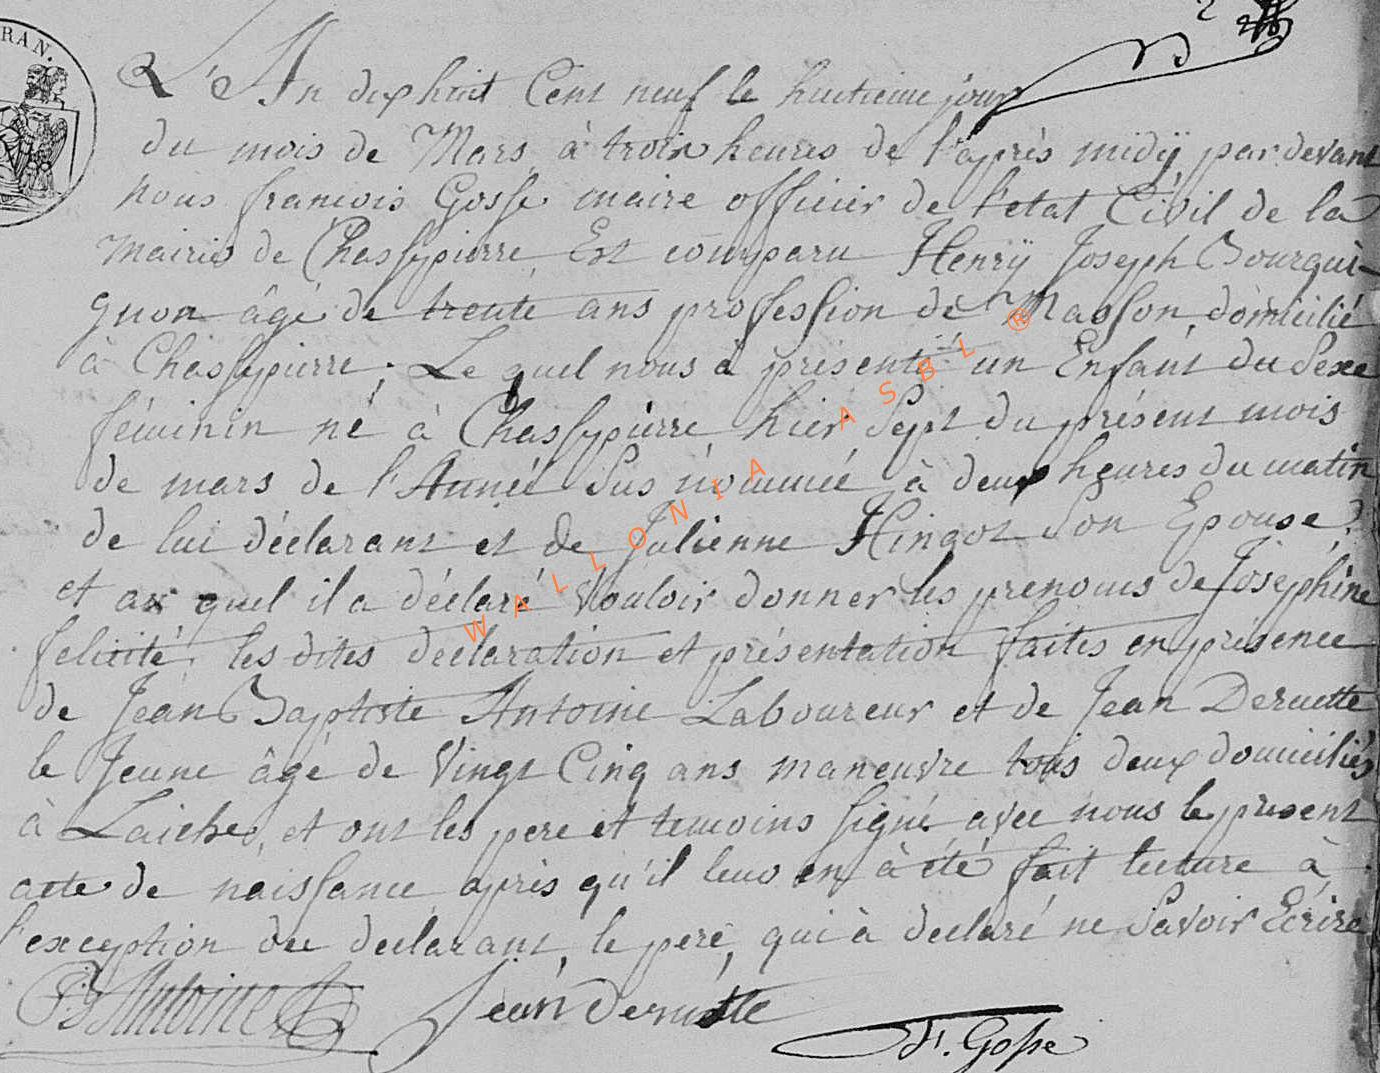 RAN.
L'An dix huit Cent neuf le huitieme jour
du mois de Mars à trois heures de l'après midÿ, par devant
nous francois Gosse maire officier de l'etat Civil de la
Mairie de Chassepierre Est comparu Henrÿ Joseph Bourgui-
gnon âgé de trente ans profession de Masson domicilié
à Chassepierre; Le quel nous à présenté un Enfant du Sexe
féminin né à Chassepierre hier Sept du présent mois
de mars de l'Année Sus nommée à deux heures du matin
de lui déclarant et de Julienne Hingot Son Epouse,
et au quel il a déclaré Vouloir donner les prenoms de Joséphine
felicité, les dites declaration et présentation faites en présence
de Jean Baptiste Antoine Laboureur et de Jean Deruette
le Jeune âgé de Vingt Cinq ans maneuvre tous deux domiciliés
à Laiche, et ont les pere et temoins signé avec nous le present
acte de naissance après qu'il leur en à été fait lecture à
l'exception du declarant, le pere, qui à declaré ne Savoir Ecrire
JB Antoine Jean Deruette
F. Gosse
WALLONIA ASBL ®